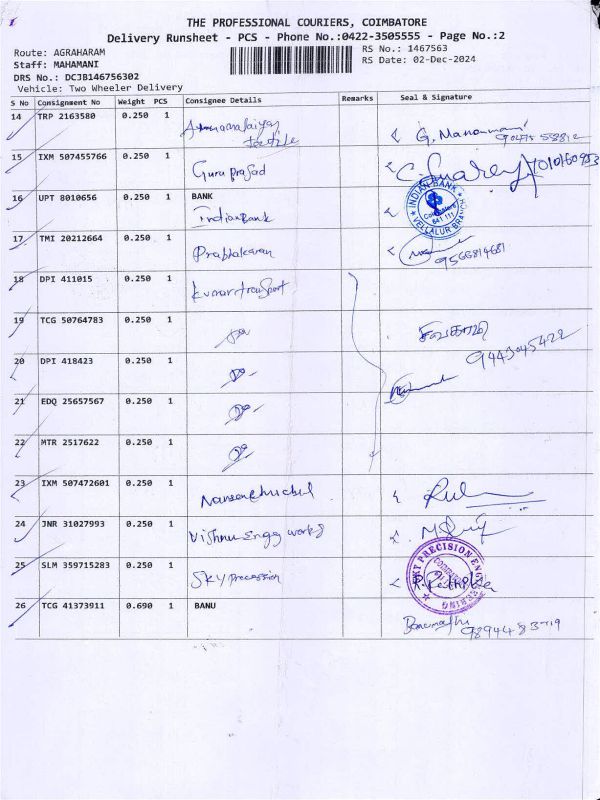 THE PROFESSIONAL COURIERS, COIMBATORE
Delivery Runsheet - PCS - Phone No.:0422-3505555 - Page No.:2
Route: AGRAHARAM
RS No.: 1467563
Staff: MAHAMANI
RS Date: 02-Dec-2024
DRS No.: DCJB146756302
Vehicle: Two Wheeler Delivery
S No Consignment No Weight PCS Consignee Details Remarks Seal & Signature
14 TRP 2163580 0.250 1
15 IXM 507455766 0.250 1 Guru prasad
16 UPT 8010656 0.250 1 BANK
Indian Bank
INDIAN BANK
Coimbatore
641 111
VELLALUR
17 TMI 20212664 0.250 1 Prabhakaran
9566814681
18 DPI 411015 0.250 1 Kumar transport
19 TCG 50764783 0.250 1 Do
சிவகாமி
9443045422
20 DPI 418423 0.250 1 Do
21 EDQ 25657567 0.250 1 Do
22 MTR 2517622 0.250 1 Do
23 IXM 507472601 0.250 1
24 JNR 31027993 0.250 1 Vishnu Engg works
25 SLM 359715283 0.250 1 Sky precession
SKY PRECISION ENGINEERING
26 TCG 41373911 0.690 1 BANU
Banumathi